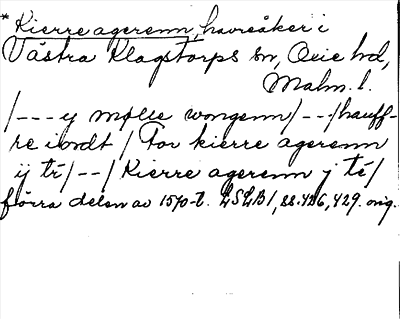 * Kierre agerenn, havreåker i
Västra Klagstorps sn, Oxie hd,
Malm. l.
/--- y mølle wongenn/--/hauff-
re i ordt / For kierre agerenn
ij tr/--/ Kierre agerenn j tr/
förra delen av 1570-t. LSLB1, ss. 426, 429. orig.